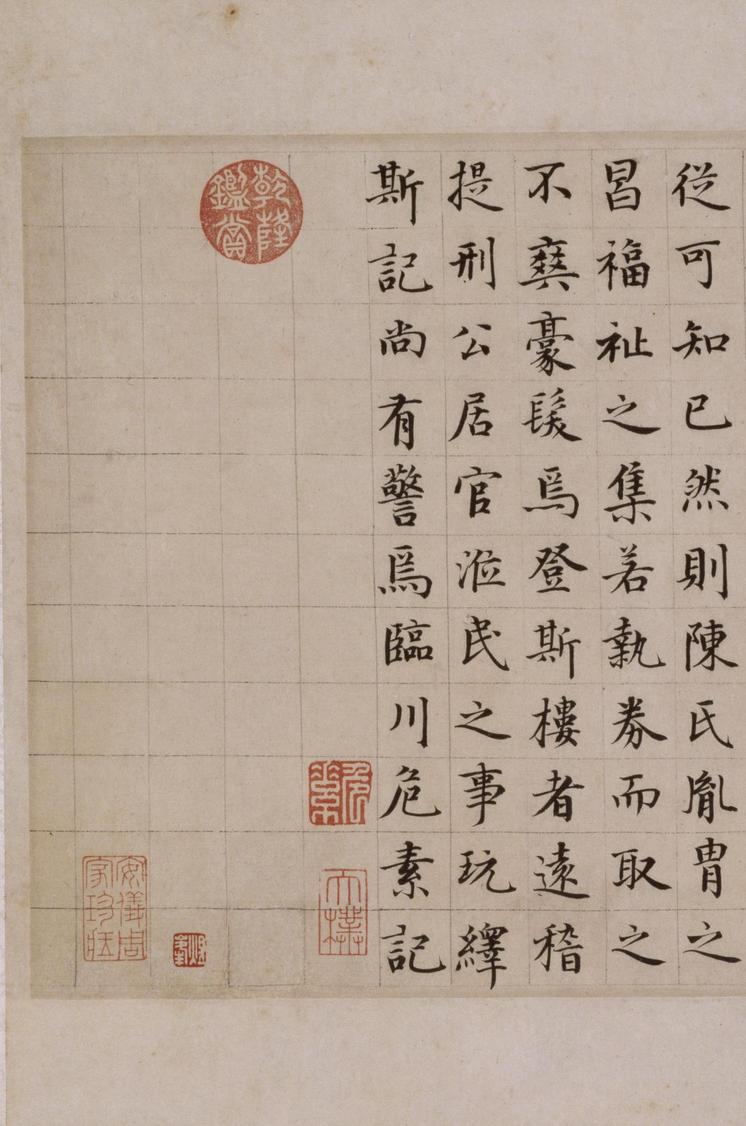 從可知已然則陳氏胤胄之
昌福祉之集若執券而取之
不爽豪髮焉登斯樓者遠稽
提刑公居官涖民之事玩繹
斯記尚有警焉臨川危素記
乾隆鑑賞
危素
太樸
安儀周家珍藏